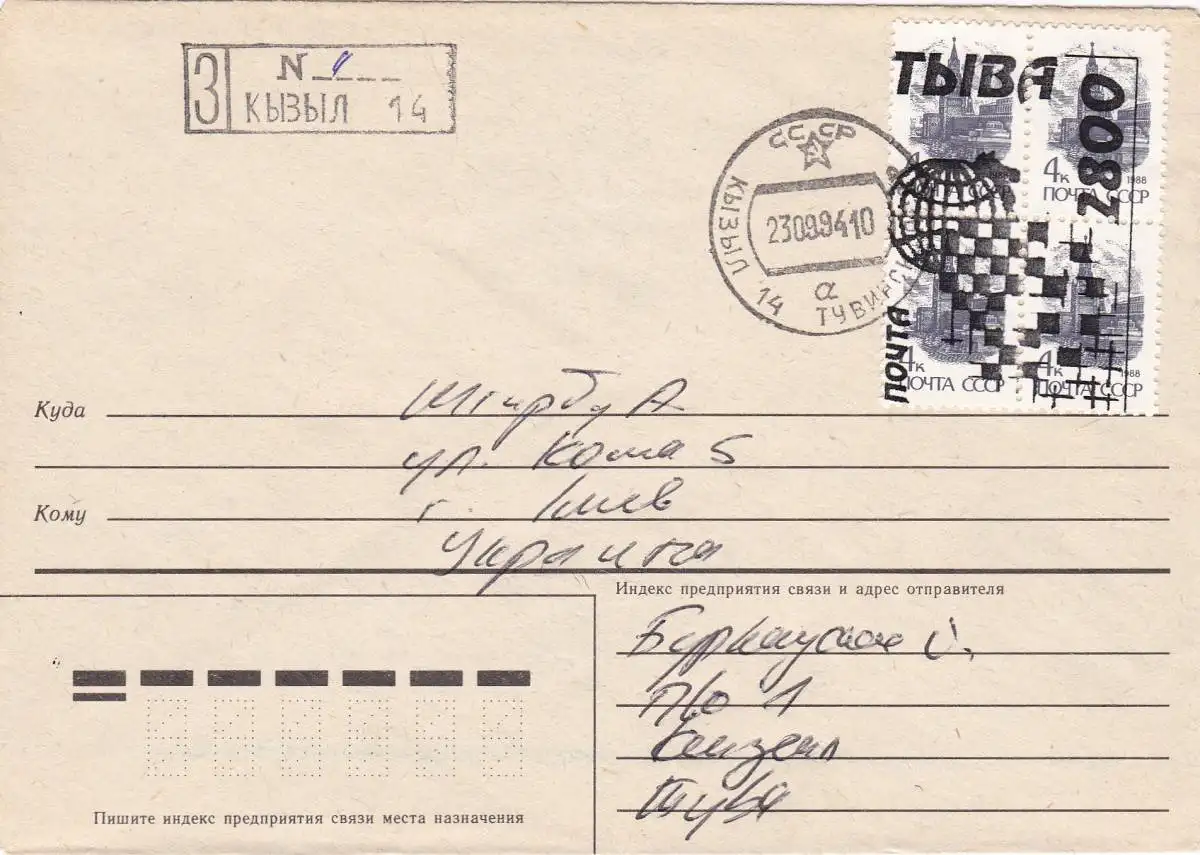 З
N 4
КЫЗЫЛ 14
СССР
КЫЗЫЛ 14
23099410
а
ТУВИНСК
ТЫВА
2800
ПОЧТА
4к
1988
ПОЧТА СССР
4к
1988
ПОЧТА СССР
4к
ПОЧТА СССР
4к
1988
ПОЧТА СССР
Куда
А
ул. Кома 5
Кому
г. Киев
Украина
Индекс предприятия связи и адрес отправителя
П/о 1
Кызыл
Тува
Пишите индекс предприятия связи места назначения